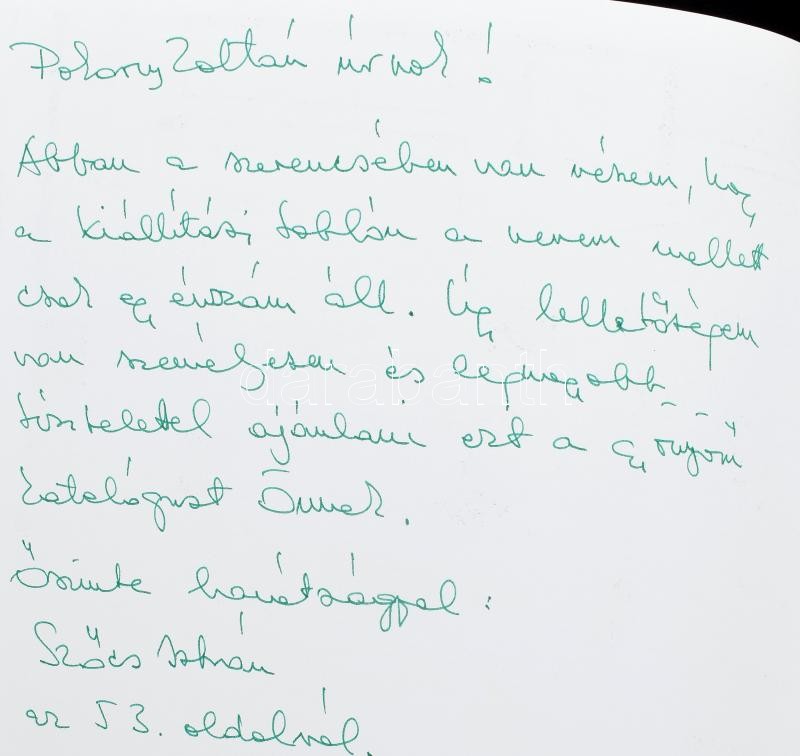 Pokorny Zoltán úrnak!
Abban a szerencsében van részem, hogy
a kiállítási tablón a nevem mellett
csak egy évszám áll. Így lehetőségem
van személyesen és legnagyobb
tisztelettel ajánlani ezt a gyönyörű
katalógust Önnek.
Őszinte barátsággal:
Szőcs István
az 53. oldalról.
darabanth